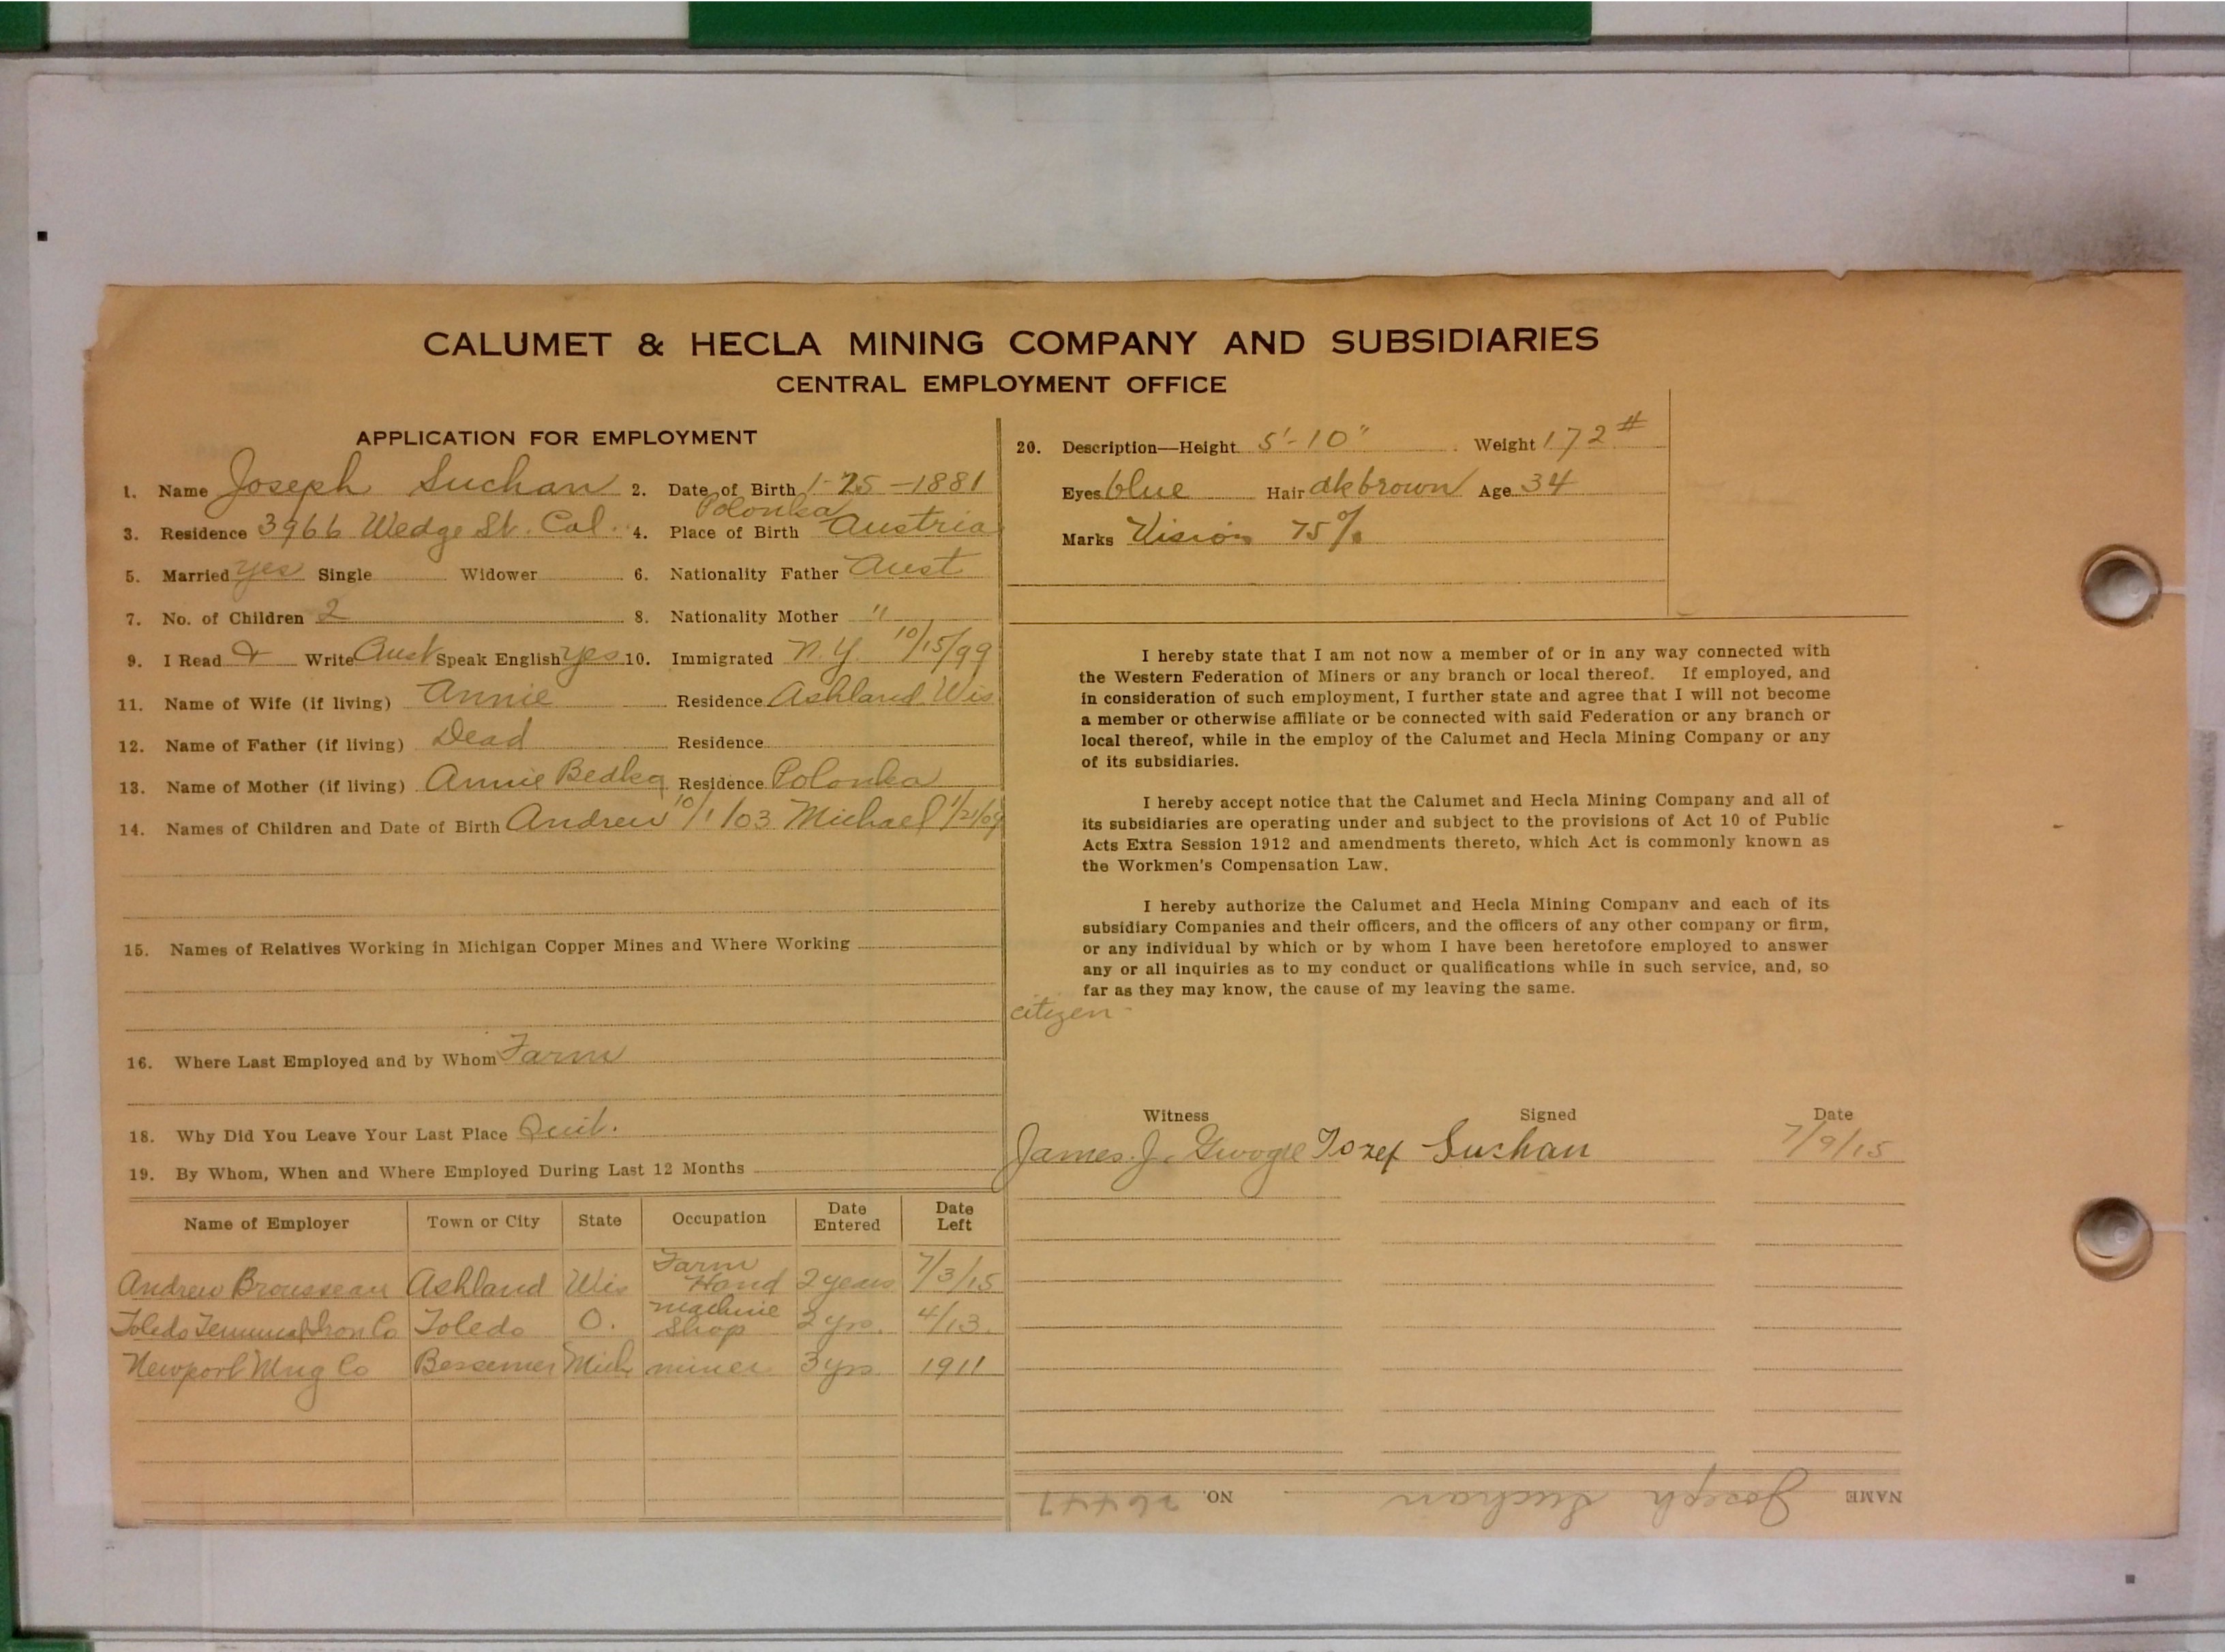 CALUMET & HECLA MINING COMPANY AND SUBSIDIARIES
CENTRAL EMPLOYMENT OFFICE
APPLICATION FOR EMPLOYMENT
1. Name Joseph Suchan 2. Date of Birth 1-25-1881
Polonka
3. Residence 3966 Wedge St. Cal. 4. Place of Birth Austria
5. Married yes Single Widower 6. Nationality Father Aust
7. No. of Children 2 8. Nationality Mother "
9. I Read & Write Aust Speak English yes 10. Immigrated N.Y. 10/15/99
11. Name of Wife (if living) Annie Residence Ashland Wis
12. Name of Father (if living) Dead Residence
13. Name of Mother (if living) Annie Bedka Residence Polonka
14. Names of Children and Date of Birth Andrew 10/1/03 Michael 1/21/09
15. Names of Relatives Working in Michigan Copper Mines and Where Working
16. Where Last Employed and by Whom Farm
18. Why Did You Leave Your Last Place Quit.
19. By Whom, When and Where Employed During Last 12 Months
Name of Employer Town or City State Occupation Date Entered Date Left
Andrew Brousseau Ashland Wis Farm Hand 2 years 7/3/15
Toledo Iron Co Toledo O. Machine Shop 2 yrs. 4/13
Newport Mng Co Bessemer Mich miner 3 yrs. 1911
20. Description—Height 5'-10" Weight 172#
Eyes blue Hair dk brown Age 34
Marks Vision 75%
I hereby state that I am not now a member of or in any way connected with
the Western Federation of Miners or any branch or local thereof. If employed, and
in consideration of such employment, I further state and agree that I will not become
a member or otherwise affiliate or be connected with said Federation or any branch or
local thereof, while in the employ of the Calumet and Hecla Mining Company or any
of its subsidiaries.
I hereby accept notice that the Calumet and Hecla Mining Company and all of
its subsidiaries are operating under and subject to the provisions of Act 10 of Public
Acts Extra Session 1912 and amendments thereto, which Act is commonly known as
the Workmen's Compensation Law.
I hereby authorize the Calumet and Hecla Mining Company and each of its
subsidiary Companies and their officers, and the officers of any other company or firm,
or any individual by which or by whom I have been heretofore employed to answer
any or all inquiries as to my conduct or qualifications while in such service, and, so
far as they may know, the cause of my leaving the same.
citizen
Witness Signed Date
James J. Jozef Suchan 7/9/15
NAME Joseph Suchan NO. 26447